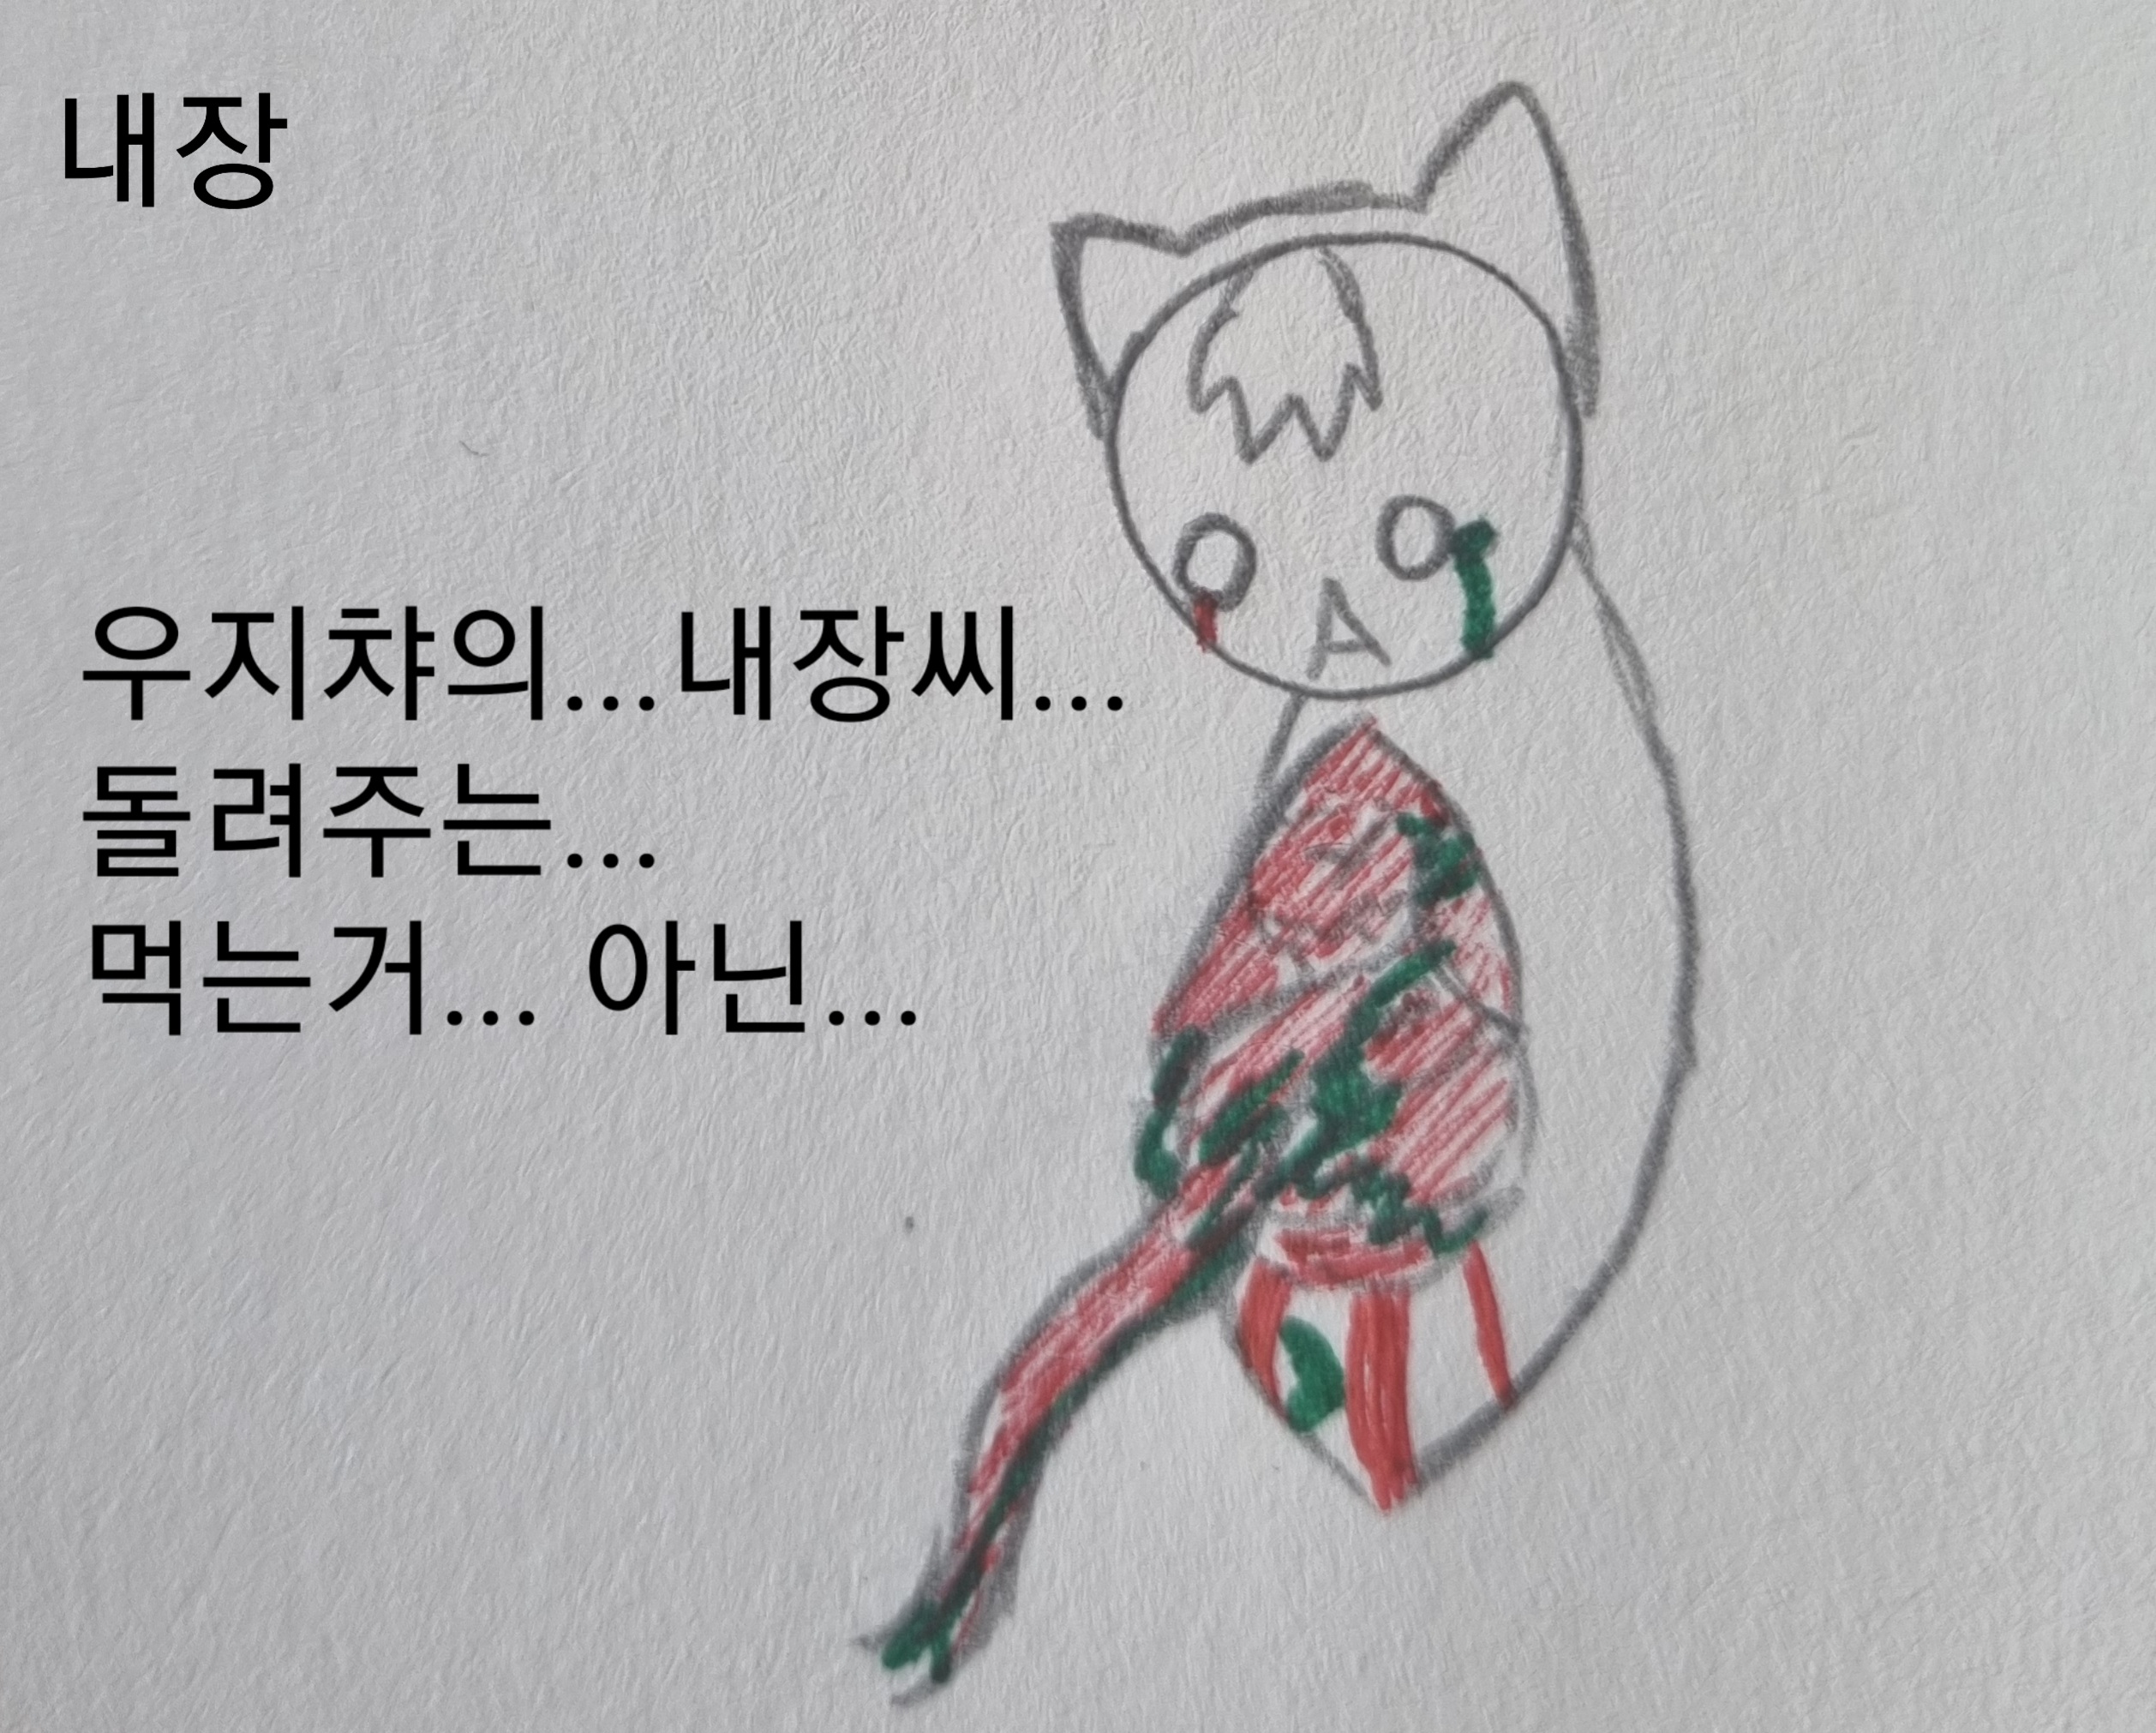 내장
우지챠의...내장씨...
돌려주는...
먹는거... 아닌...